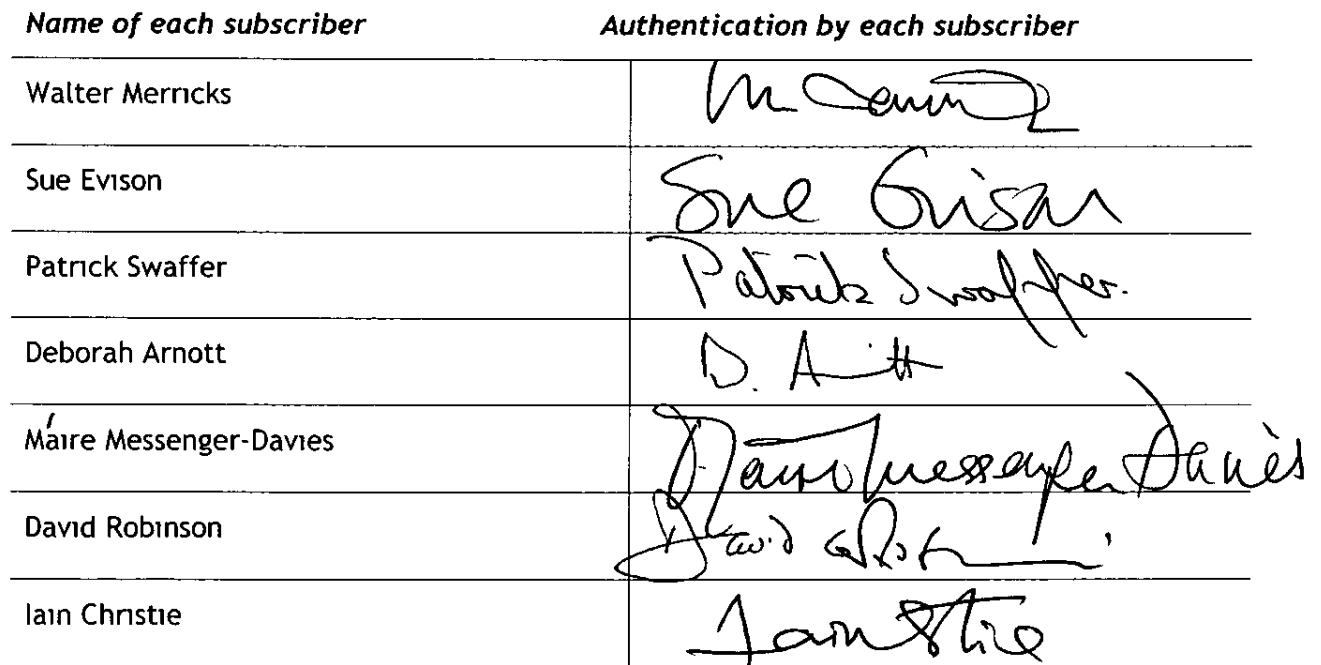 Name of each subscriber Authentication by each subscriber
Walter Merricks
Sue Evison Sue Evison
Patrick Swaffer Patrick Swaffer.
Deborah Arnott D. Arnott
Máire Messenger-Davies Máire Messenger Davies
David Robinson David
Iain Christie Iain